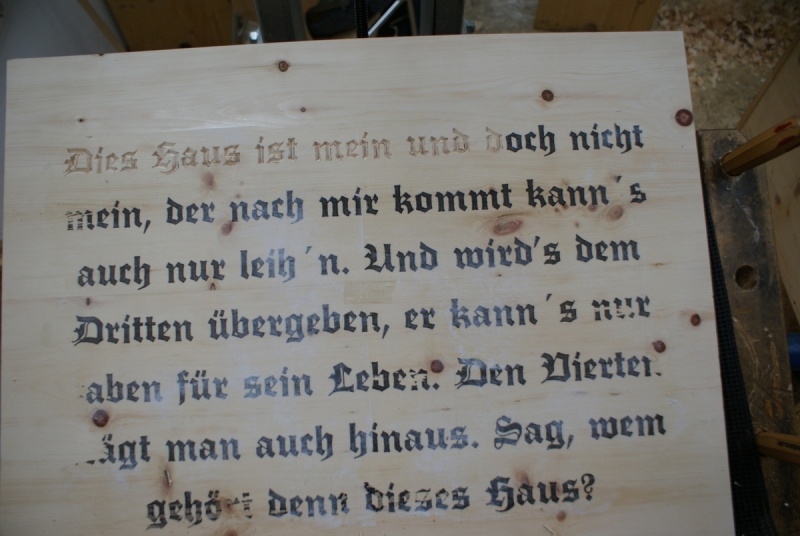 Dies Haus ist mein und doch nicht
mein, der nach mir kommt kann´s
auch nur leih´n. Und wird's dem
Dritten übergeben, er kann´s nur
aben für sein Leben. Den Vierten
ägt man auch hinaus. Sag, wem
gehört denn dieses Haus?